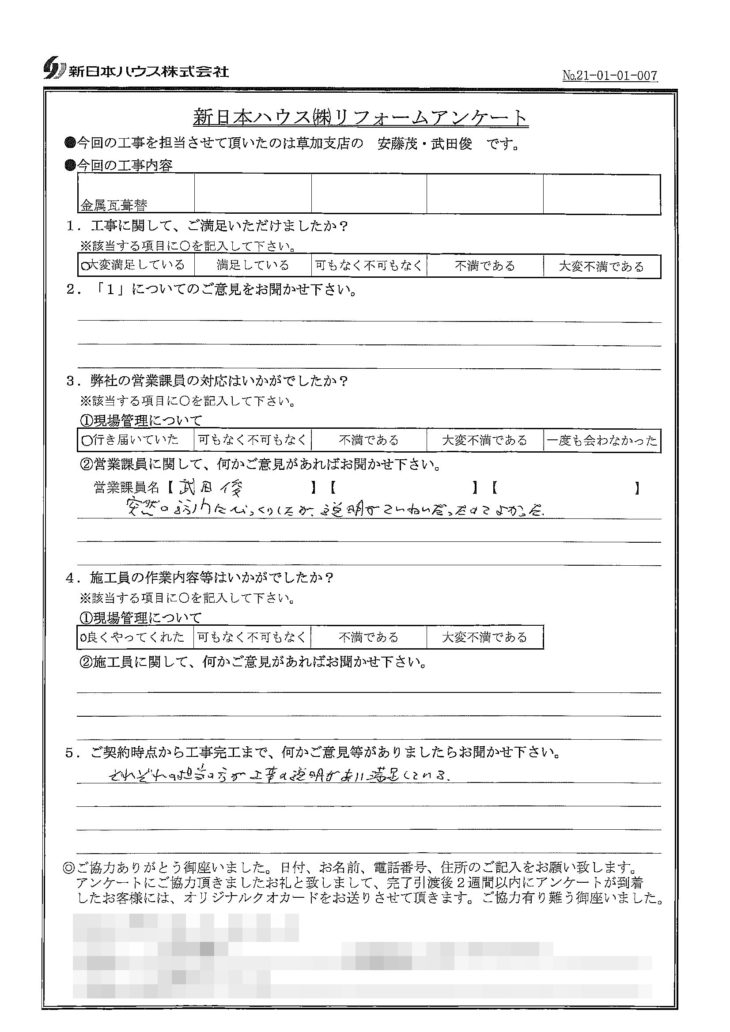 新日本ハウス株式会社
№21-01-01-007
新日本ハウス㈱リフォームアンケート
●今回の工事を担当させて頂いたのは草加支店の 安藤茂・武田俊 です。
●今回の工事内容
金属瓦葺替
1．工事に関して、ご満足いただけましたか？
※該当する項目に○を記入して下さい。
○大変満足している 満足している 可もなく不可もなく 不満である 大変不満である
2．「1」についてのご意見をお聞かせ下さい。
3．弊社の営業課員の対応はいかがでしたか？
※該当する項目に○を記入して下さい。
①現場管理について
○行き届いていた 可もなく不可もなく 不満である 大変不満である 一度も会わなかった
②営業課員に関して、何かご意見があればお聞かせ下さい。
営業課員名【 武田俊 】【 】【 】
突然の訪問でびっくりしたが、説明がていねいだったのでよかった。
4．施工員の作業内容等はいかがでしたか？
※該当する項目に○を記入して下さい。
①現場管理について
○良くやってくれた 可もなく不可もなく 不満である 大変不満である
②施工員に関して、何かご意見があればお聞かせ下さい。
5．ご契約時点から工事完工まで、何かご意見等がありましたらお聞かせ下さい。
それぞれの担当の方が工事の説明があり満足している。
◎ご協力ありがとう御座いました。日付、お名前、電話番号、住所のご記入をお願い致します。
アンケートにご協力頂きましたお礼と致しまして、完了引渡後２週間以内にアンケートが到着
したお客様には、オリジナルクオカードをお送りさせて頂きます。ご協力有り難う御座いました。